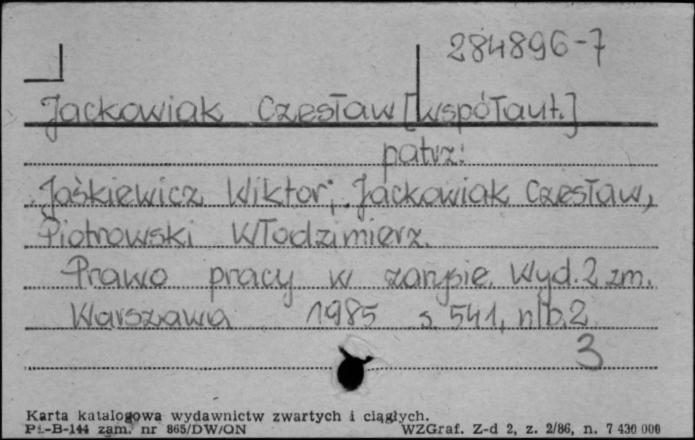 284896-7
Jackowiak Czesław [współaut.]
patrz:
Jaśkiewicz Wiktor; Jackowiak Czesław,
Piotrowski Włodzimierz.
Prawo pracy w zarysie. Wyd. 2 zm.
Warszawa 1985 s. 541, nlb. 2
3
Karta katalogowa wydawnictw zwartych i ciągłych.
Pu-B-144 zam. nr 865/DW/ON WZGraf. Z-d 2, z. 2/86, n. 7 430 000